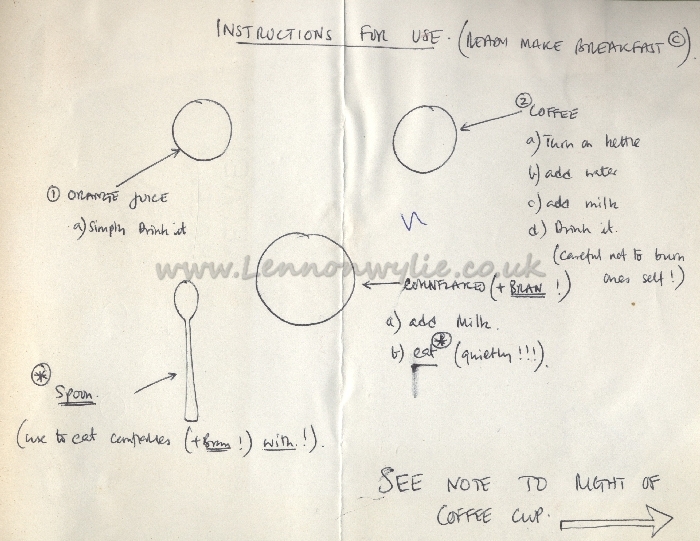 INSTRUCTIONS FOR USE. (READY MAKE BREAKFAST ©).
② COFFEE
a) Turn on kettle
b) add water
c) add milk
d) Drink it.
(careful not to burn
ones self!)
① ORANGE JUICE
a) Simply Drink it
www.Lennonwylie.co.uk
CORNFLAKES (+ BRAN !)
a) add Milk.
b) eat * (quietly!!!).
* Spoon.
(use to eat cornflakes (+Bran!) with!).
SEE NOTE TO RIGHT OF
COFFEE CUP.